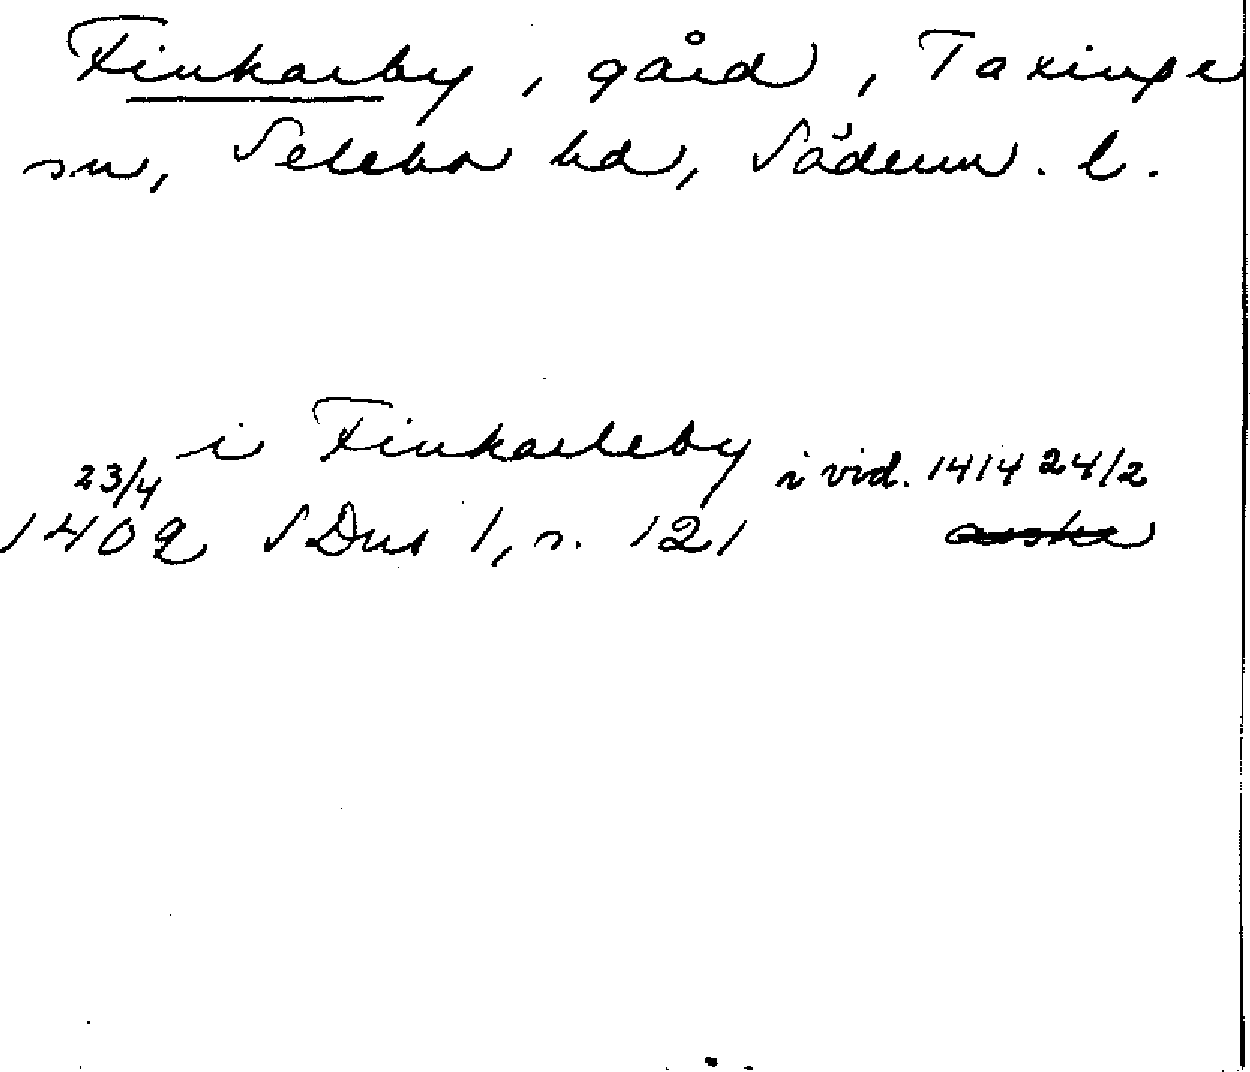 Finkarby, gård, Taxinge
sn, Selebo hd, Söderm. l.
i Finkarleby i vid. 1414 24/2
23/4
1409 SDns 1, s. 121 avskr